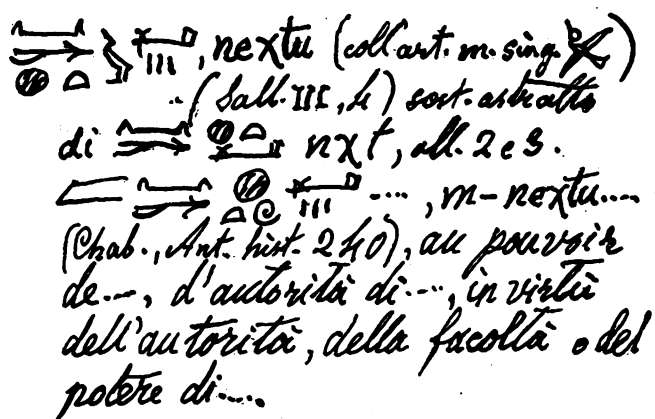 , nextu (coll'art. m. sing. )
.. (Sall. III, 4) sost. astratto
di nχt, all. 2 e 3.
...., m-nextu....
(Chab., Ant. hist. 240), au pouvoir
de...., d'autorità di...., in virtù
dell'autorità, della facoltà o del
potere di.....